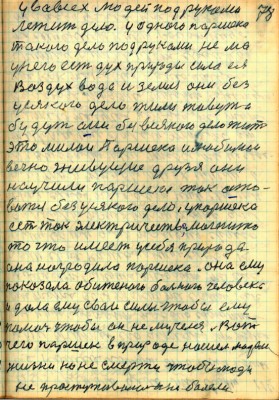 у вас всех людей под руками 79
лежит дело. у одного паршека
такого дело под руками не ма
у него есть дух природы сила ея
Воздух вода и земля они без
усякого дело жили живут и
будут
это милои Паршека любимои
вечно живущие друзя они
научили паршека так
вать без усякого дело, упаршека
ест ток электричество магнито
то что имеет усебя природа
она наградила паршека. она ему
показала обиженого больного человека
и дала ему свои силы чтобы ему
помоч чтобы он не мучелся. Вот
чего паршек в природе нашел
жизни но не смерти чтобы люди
не простуживалися не болели